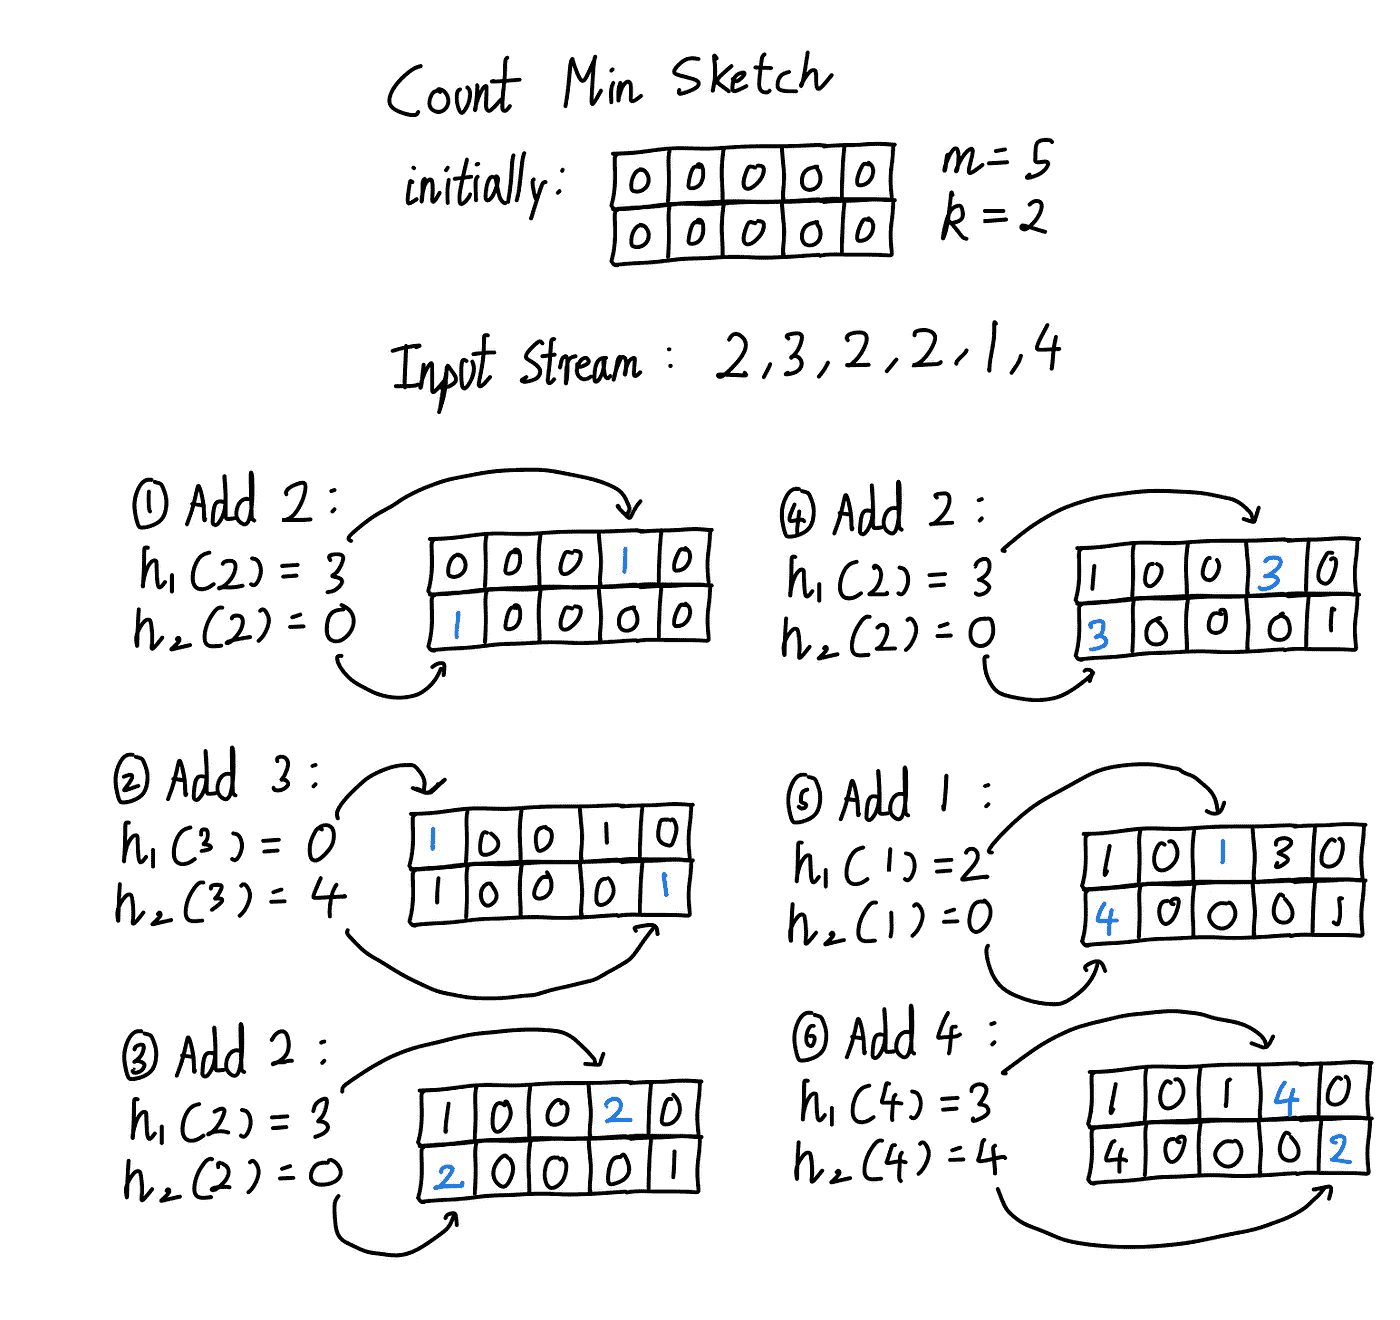 Count Min Sketch
initially:
0 0 0 0 0
0 0 0 0 0
m = 5
k = 2
Input Stream : 2, 3, 2, 2, 1, 4
① Add 2 :
h₁(2) = 3
h₂(2) = 0
0 0 0 1 0
1 0 0 0 0
② Add 3 :
h₁(3) = 0
h₂(3) = 4
1 0 0 1 0
1 0 0 0 1
③ Add 2 :
h₁(2) = 3
h₂(2) = 0
1 0 0 2 0
2 0 0 0 1
④ Add 2 :
h₁(2) = 3
h₂(2) = 0
1 0 0 3 0
3 0 0 0 1
⑤ Add 1 :
h₁(1) = 2
h₂(1) = 0
1 0 1 3 0
4 0 0 0 1
⑥ Add 4 :
h₁(4) = 3
h₂(4) = 4
1 0 1 4 0
4 0 0 0 2